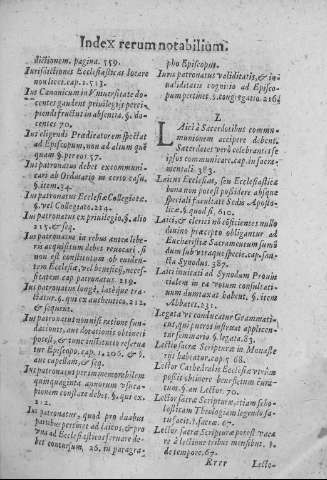 Index rerum notabilium.
dictionem. pagina. 559.
Iurisdictiones Ecclesiasticas locare
non licet. cap. 1. 513.
Ius Canonicum in Vniuersitate do-
centes gaudent priuilegijs perci-
piendi fructus in absentia. §. do-
centes. 70.
Ius eligendi Prædicatorem spectat
ad Episcopum, non ad alium quē
quam. §. præter. 57.
Ius patronatus debet excommuni-
cari ab Ordinario in certo casu.
§. item. 34.
Ius patronatus Ecclesiæ Collegiatæ.
§. vel Collegiatæ. 214.
Ius patronatus ex priuilegio. §. alio
215. & seq.
Ius patronatus in rebus antea libe-
ris acquisitum debet reuocari si
non est constitutum ob euiden-
tem Ecclesiæ, vel beneficij, neces-
sitatem. cap. patronatus. 219.
Ius patronatus longè, latéque tra-
ctatur. §. qui ex authentico. 212.
& sequent.
Ius patronatus non nisi ratione fun-
dationis, aut dotationis obtineri
potest, & tunc institutio reseruatur
Episcopo. cap. 1. 206. & §.
aut capellam, & seq.
Ius patronatus per immemorabilem
quinquaginta annorum vsurpa-
tionem constare debet. §. qui ex.
212.
Ius patronatus, quod pro duabus
partibus pertinet ad laicos, & pro
vna ad Ecclesiasticos seruare de-
bet contextum. 26. in paragra-
pho Episcopus.
Iuris patronatus validitatis, & in-
ualiditatis cognitio ad Episco-
pum pertinet. §. congregatio. 216.
L
Laici à Sacerdotibus commu-
nionem accipere debent,
Sacerdotes verò celebrantes se
ipsos communicare. cap. in sacra-
mentali. 383.
Laicus Ecclesiæ, seu Ecclesiasticæ
bona non potest possidere absque
speciali facultate Sedis Aposto-
licæ. §. quod si. 610.
Laici, & clerici nō cōficientes nullo
diuino præcepto obligantur ad
Eucharistiæ Sacramentum sumē-
dum sub vtraque specie. cap. san-
cta Synodus. 387.
Laici inuitati ad Synodum Prouin-
cialem in ea votum consultati-
uum dumtaxat habent. §. item
Abbates. 231.
Legata vt conducatur Grammati-
cus, qui pueros instruat applicen-
tur seminario. §. legata. 63.
Lectio sacræ Scripturæ in Monaste-
rijs habeatur. cap. 5. 68.
Lector Cathedralis Ecclesiæ viuam
possit obtinere beneficium cura-
tum. §. an Lector. 70.
Lector sacræ Scripturæ, etiam scho-
lasticam Theologiam legendo sa-
tisfacit. §. sacræ. 67.
Lector sacræ Scripturæ potest vaca-
re à lectione tribus mensibus. §.
de tempore. 67.
Rrrr
Lecto-